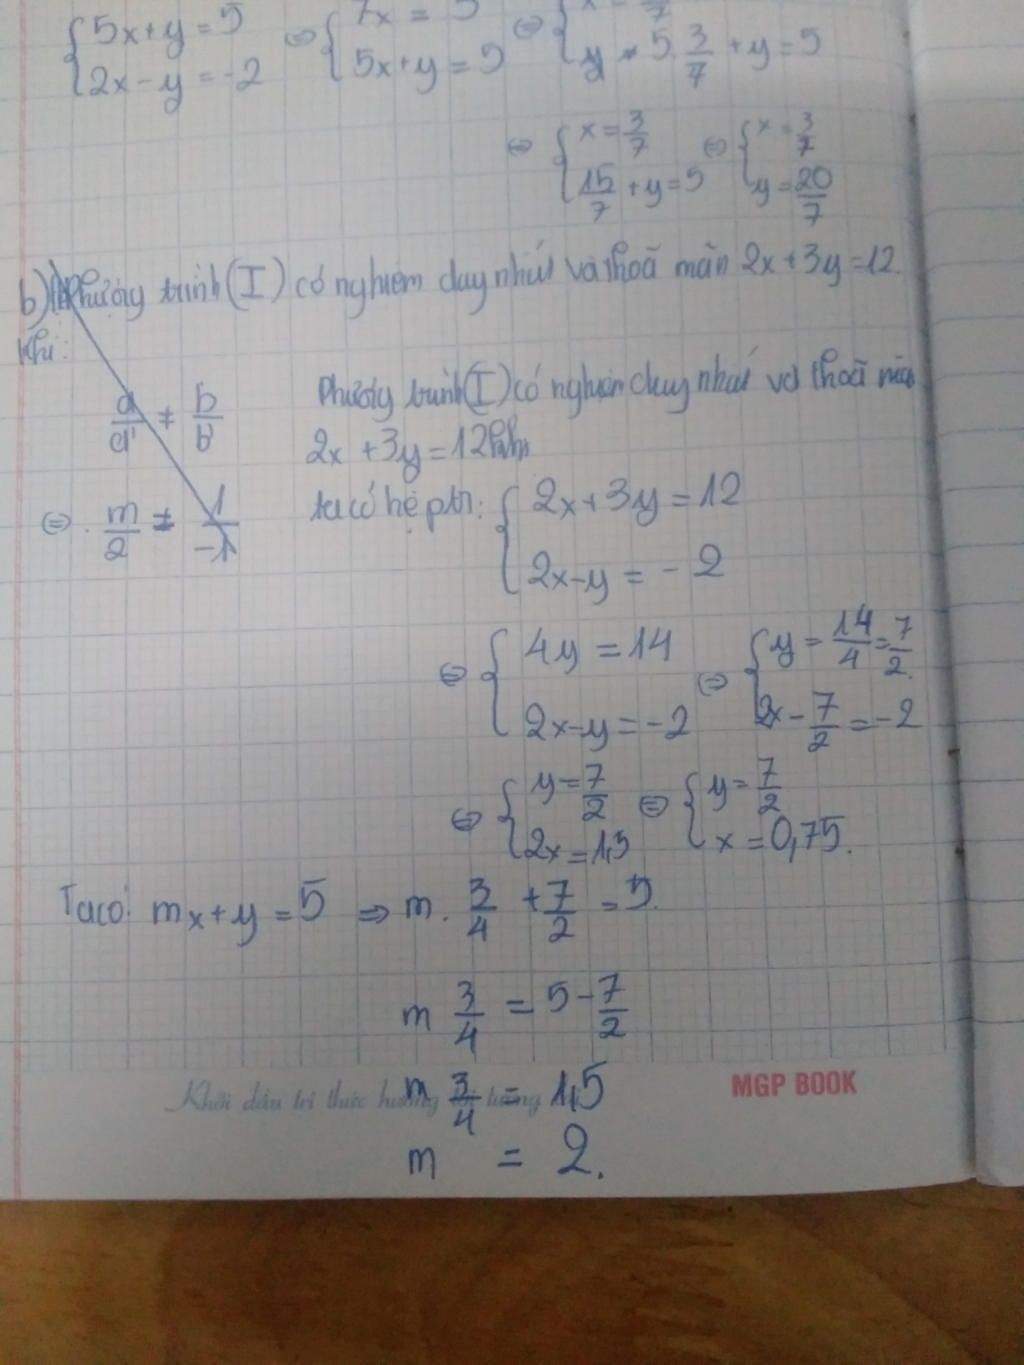 { 5x+y=5 ⇔ { 7x = 3 ⇔ {
2x-y=-2 5x+y=5 y = 5.3/7 + y = 5
⇔ { x = 3/7 ⇔ { x = 3/7
15/7 + y = 5 y = 20/7
b) Phương trình (I) có nghiệm duy nhất và thoã mãn 2x+3y=12
Khi:
a/a' ≠ b/b' Phương trình (I) có nghiệm duy nhất và thoã mãn
2x+3y=12
⇔ m/2 ≠ 1/-1 ta có hệ ptr: { 2x+3y=12
2x-y = -2
⇔ { 4y = 14 ⇔ { y = 14/4 = 7/2
2x-y = -2 2x - 7/2 = -2
⇔ { y = 7/2 ⇔ { y = 7/2
2x = 1,5 x = 0,75.
Ta có: mx+y=5 ⇒ m. 3/4 + 7/2 = 5.
m 3/4 = 5 - 7/2
m 3/4 = 1,5
Khởi đầu tri thức MGP BOOK
m = 2.